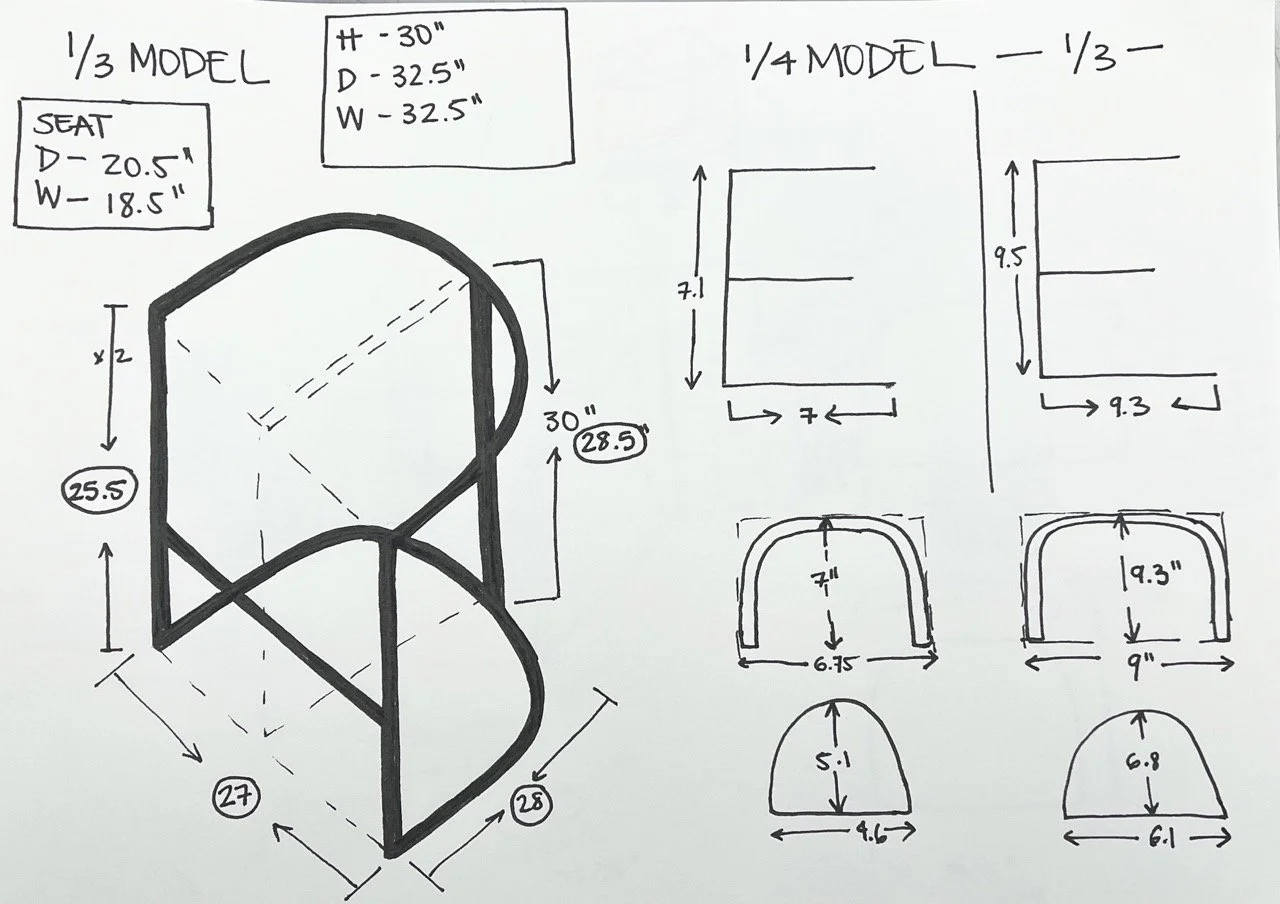 1/3 MODEL
H - 30"
D - 32.5"
W - 32.5"
SEAT
D - 20.5"
W - 18.5"
x 2
25.5
30"
28.5"
27
28
1/4 MODEL — 1/3 —
7.1
7
9.5
9.3
7"
6.75
9.3"
9"
5.1
4.6
6.8
6.1